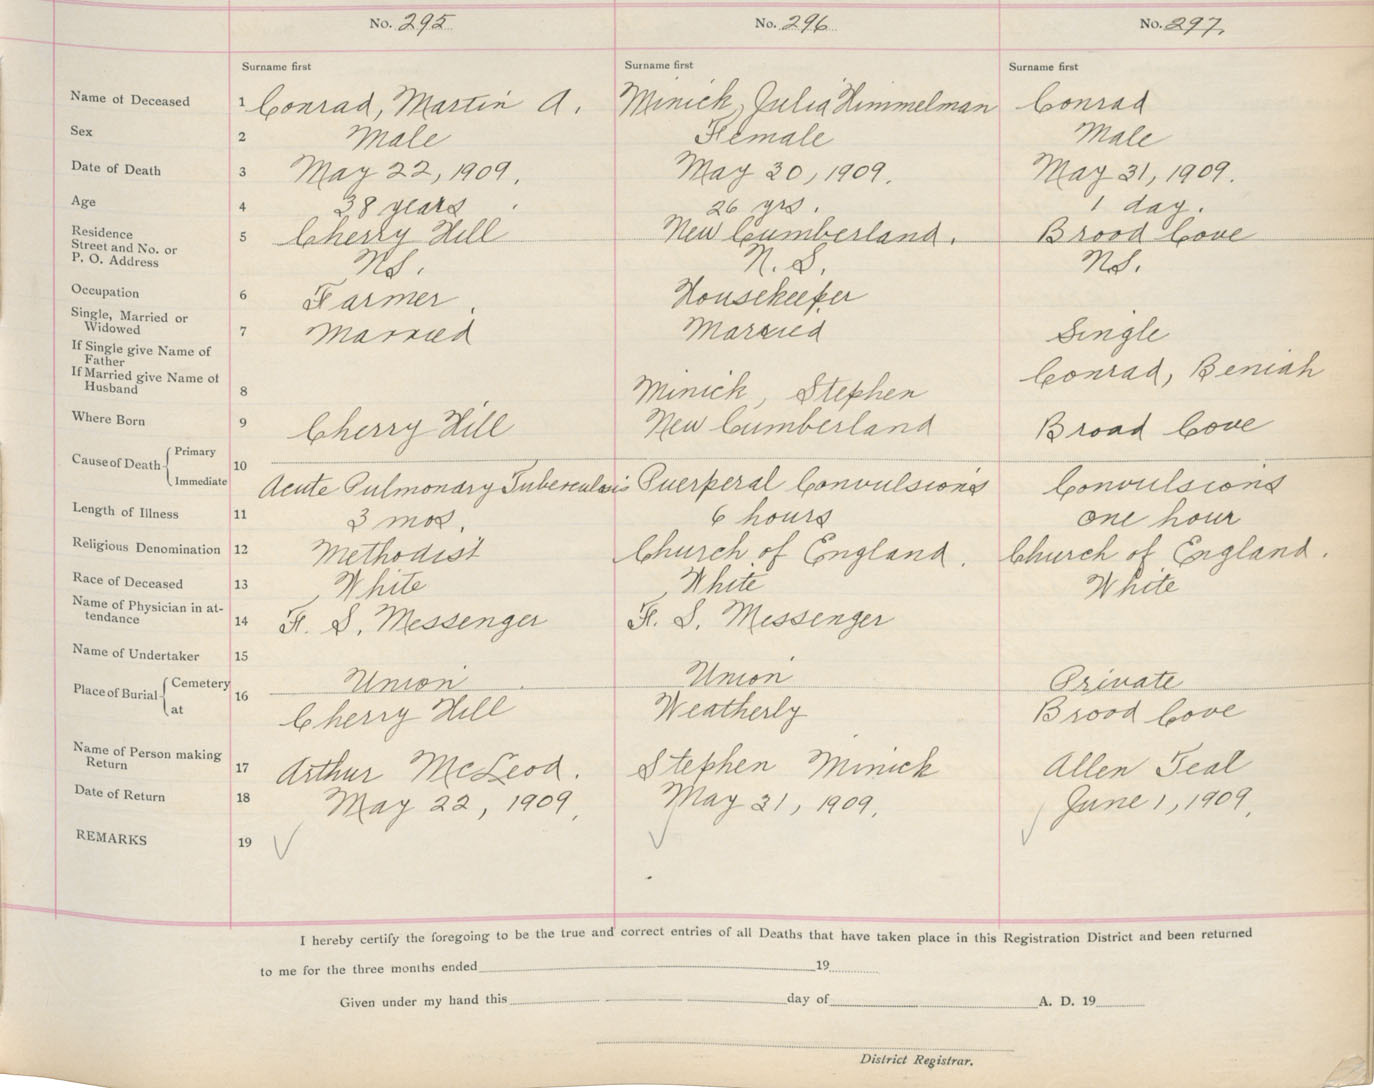 No. 295 No. 296 No. 297.
Surname first Surname first Surname first
Name of Deceased 1 Conrad, Martin A. Minick, Julia Himmelman Conrad
Sex 2 Male Female Male
Date of Death 3 May 22, 1909. May 30, 1909. May 31, 1909.
Age 4 38 years. 26 yrs. 1 day.
Residence
Street and No. or
P. O. Address
5 Cherry Hill New Cumberland. Broad Cove
NS. N. S. NS.
Occupation 6 Farmer. Housekeeper
Single, Married or
Widowed
7 Married Married Single
If Single give Name of
Father
Conrad, Beniah
If Married give Name of
Husband
8 Minick, Stephen
Where Born 9 Cherry Hill New Cumberland Broad Cove
Cause of Death Primary
Immediate
10 Acute Pulmonary Tuberculosis Puerperal Convulsions Convulsions
Length of Illness 11 3 mos. 6 hours one hour
Religious Denomination 12 Methodist Church of England. Church of England.
Race of Deceased 13 White White White
Name of Physician in at-
tendance
14 F. S. Messenger F. S. Messenger
Name of Undertaker 15
Place of Burial Cemetery Union Union Private
16
at Cherry Hill Weatherly Broad Cove
Name of Person making
Return
17 Arthur McLeod. Stephen Minick Allen Teal
Date of Return 18 May 22, 1909. May 31, 1909. June 1, 1909.
REMARKS 19
I hereby certify the foregoing to be the true and correct entries of all Deaths that have taken place in this Registration District and been returned
to me for the three months ended 19
Given under my hand this day of A. D. 19
District Registrar.